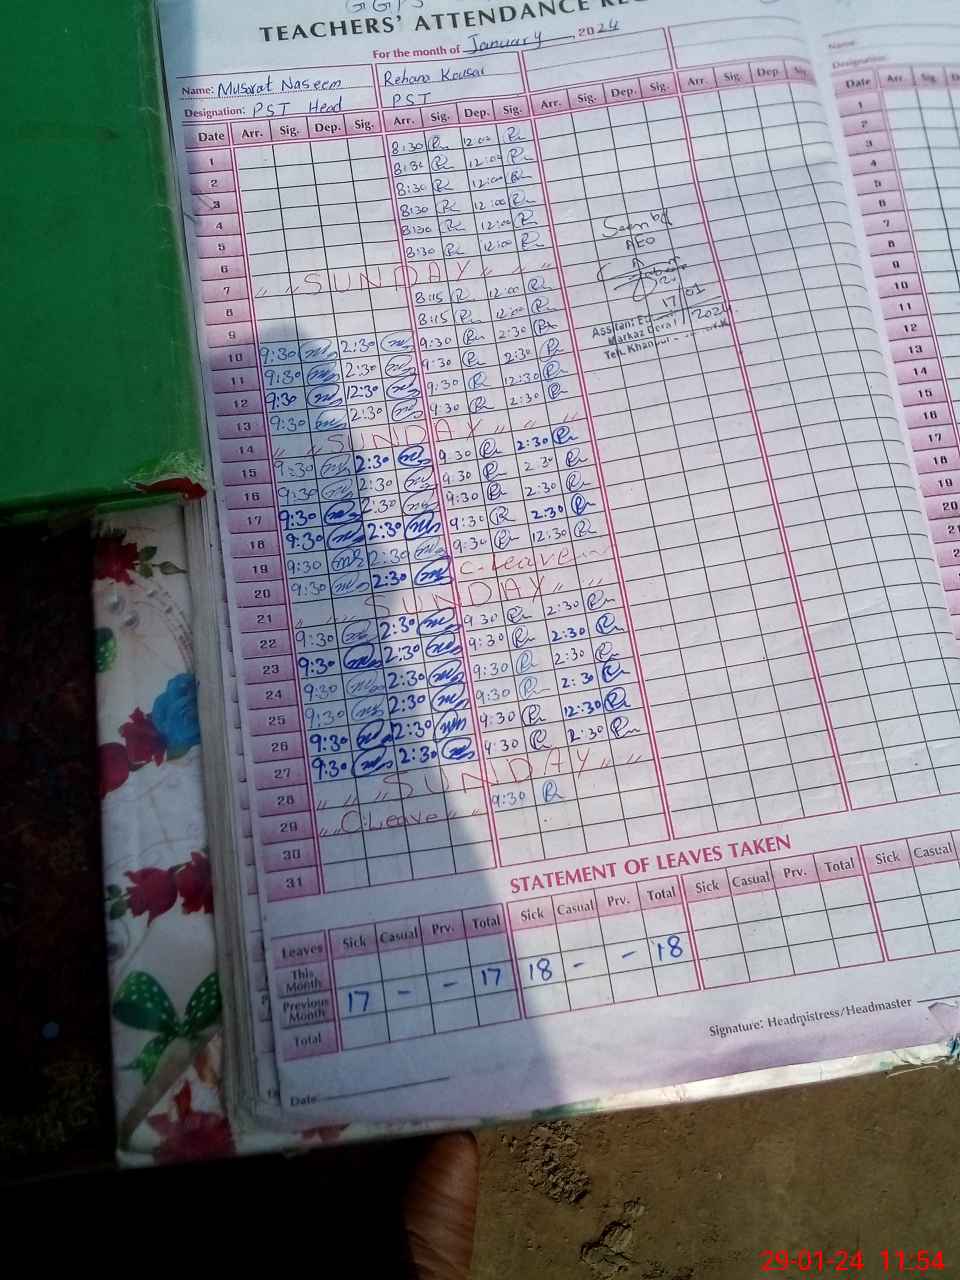 TEACHERS' ATTENDANCE
For the month of January 2024
Name: Musarat Naseem Rehana Kousar
Designation: PST Head PST
Date Arr. Sig. Dep. Sig. Arr. Sig. Dep. Sig. Arr. Sig. Dep. Sig. Arr. Sig. Dep.
1 8:30 12:00
2 8:30 12:00
3 8:30 12:00
4 8:30 12:00
5 8:30 12:00
6 8:30 12:00
7 " " SUNDAY " " "
8 8:15 12:00
9 8:15 12:00
10 9:30 2:30 9:30 2:30
11 9:30 2:30 9:30 2:30
12 9:30 12:30 9:30 12:30
13 9:30 2:30 9:30 2:30
14 " " SUNDAY " " "
15 9:30 2:30 9:30 2:30
16 9:30 2:30 9:30 2:30
17 9:30 2:30 9:30 2:30
18 9:30 2:30 9:30 2:30
19 9:30 2:30 9:30 12:30
20 9:30 2:30 C-Leave
21 " " SUNDAY " " "
22 9:30 2:30 9:30 2:30
23 9:30 2:30 9:30 2:30
24 9:30 2:30 9:30 2:30
25 9:30 2:30 9:30 2:30
26 9:30 2:30 9:30 12:30
27 9:30 2:30 9:30 2:30
28 " " " SUNDAY " " "
29 " " C.Leave " " 9:30
30
31
Seen by
AEO
17/01
2024
Markaz
Teh. Khanpur
STATEMENT OF LEAVES TAKEN
Leaves Sick Casual Prv. Total Sick Casual Prv. Total Sick Casual Prv. Total Sick Casual
This Month
Previous Month 17 - - 17 18 - - 18
Total
Signature: Headmistress/Headmaster
Date
Name:
Designation:
Date Arr. Sig.
1
2
3
4
5
6
7
8
9
10
11
12
13
14
15
16
17
18
19
20
29-01-24 11:54